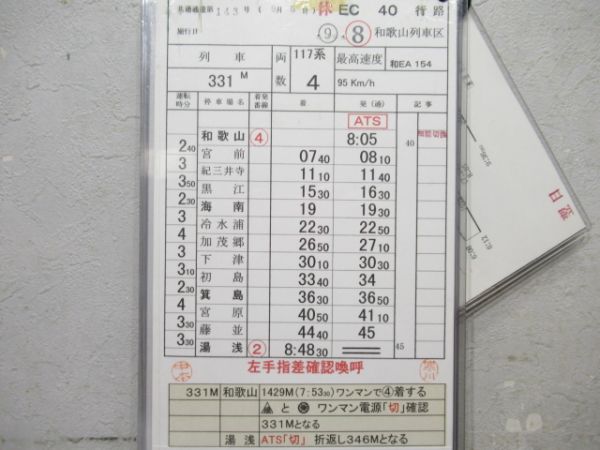 休 EC 40 行路
施行日 ⑨ . ⑧ 和歌山列車区
列車 両数 117系 最高速度 和EA154
331M 4 95 Km/h
運転時分 停車場名 着発番線 着 発(通) 記事
ATS
和歌山 ④ 8:05 40
2 40 宮前 07 40 08 10
3 紀三井寺 11 10 11 40
3 50 黒江 15 30 16 30
2 30 海南 19 19 30
3 冷水浦 22 30 22 50
4 加茂郷 26 50 27 10
3 下津 30 10 30 30
3 10 初島 33 40 34
2 30 箕島 36 30 36 50
4 宮原 40 50 41 10
3 30 藤並 44 40 45
3 30 湯浅 ② 8:48 30 45
左手指差確認喚呼
331M 和歌山 1429M(7:53 30)ワンマンで④着する
と ワンマン電源「切」確認
331Mとなる
湯浅 ATS「切」 折返し346Mとなる